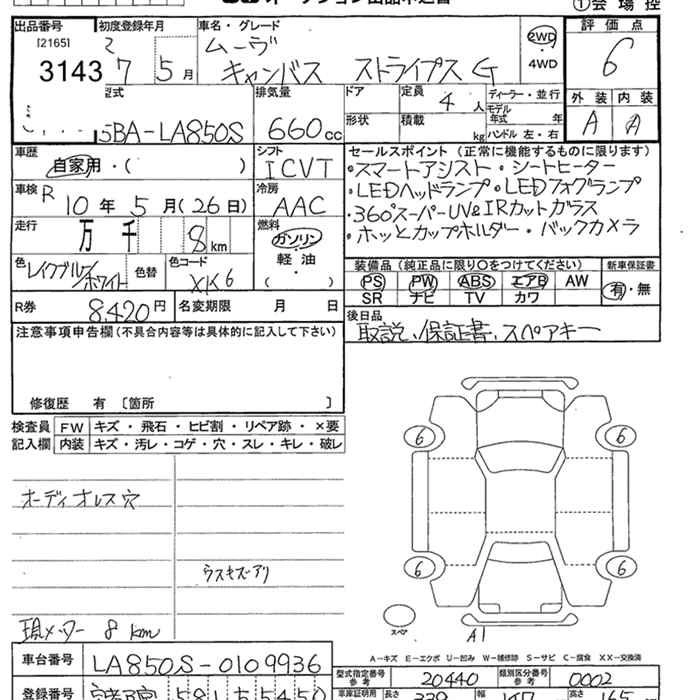 ①会場控
出品番号 初度登録年月 車名・グレード 評価点
[2165] 3143
7年 5月
ムーヴ
キャンバス ストライプス G
2WD
・
4WD
6
型式 排気量 ドア 定員 4人 ディーラー・並行
モデル年式 年
形状 積載 kg ハンドル 左・右
外装 内装
A A
5BA-LA850S 660cc
車歴 自家用・( )
シフト ICVT
車検 R 10年5月(26日)
冷房 AAC
走行 万 千 8km
燃料 ガソリン
・
軽油
( )
色 レイクブルー/ホワイト 色替 色コード XK6
R券 8,420円 名変期限 月 日
セールスポイント(正常に機能するものに限ります)
・スマートアシスト・シートヒーター
・LEDヘッドランプ・LEDフォグランプ
・360°スーパーUV&IRカットガラス
・ホッとカップホルダー・バックカメラ
装備品(純正品に限り○をつけてください) 新車保証書
PS PW ABS エアB AW 有・無
SR ナビ TV カワ
後日品
取説、保証書、スペアキー
注意事項申告欄(不具合内容等は具体的に記入して下さい)
修復歴 有 〔箇所 〕
検査員 FW キズ・飛石・ヒビ割・リペア跡・×要
記入欄 内装 キズ・汚レ・コゲ・穴・スレ・キレ・破レ
オーディオレス穴
ウスキズアリ
現メーター 8km
6 6
6 6
スペア
A1
A-キズ E-エクボ U-凹み W-補修跡 S-サビ C-腐食 XX-交換済
車台番号 LA850S-0109936
型式指定番号 参考 20440 類別区分番号 参考 0002
登録番号
車庫証明用 参考 長さ 339 幅 147 高さ 165